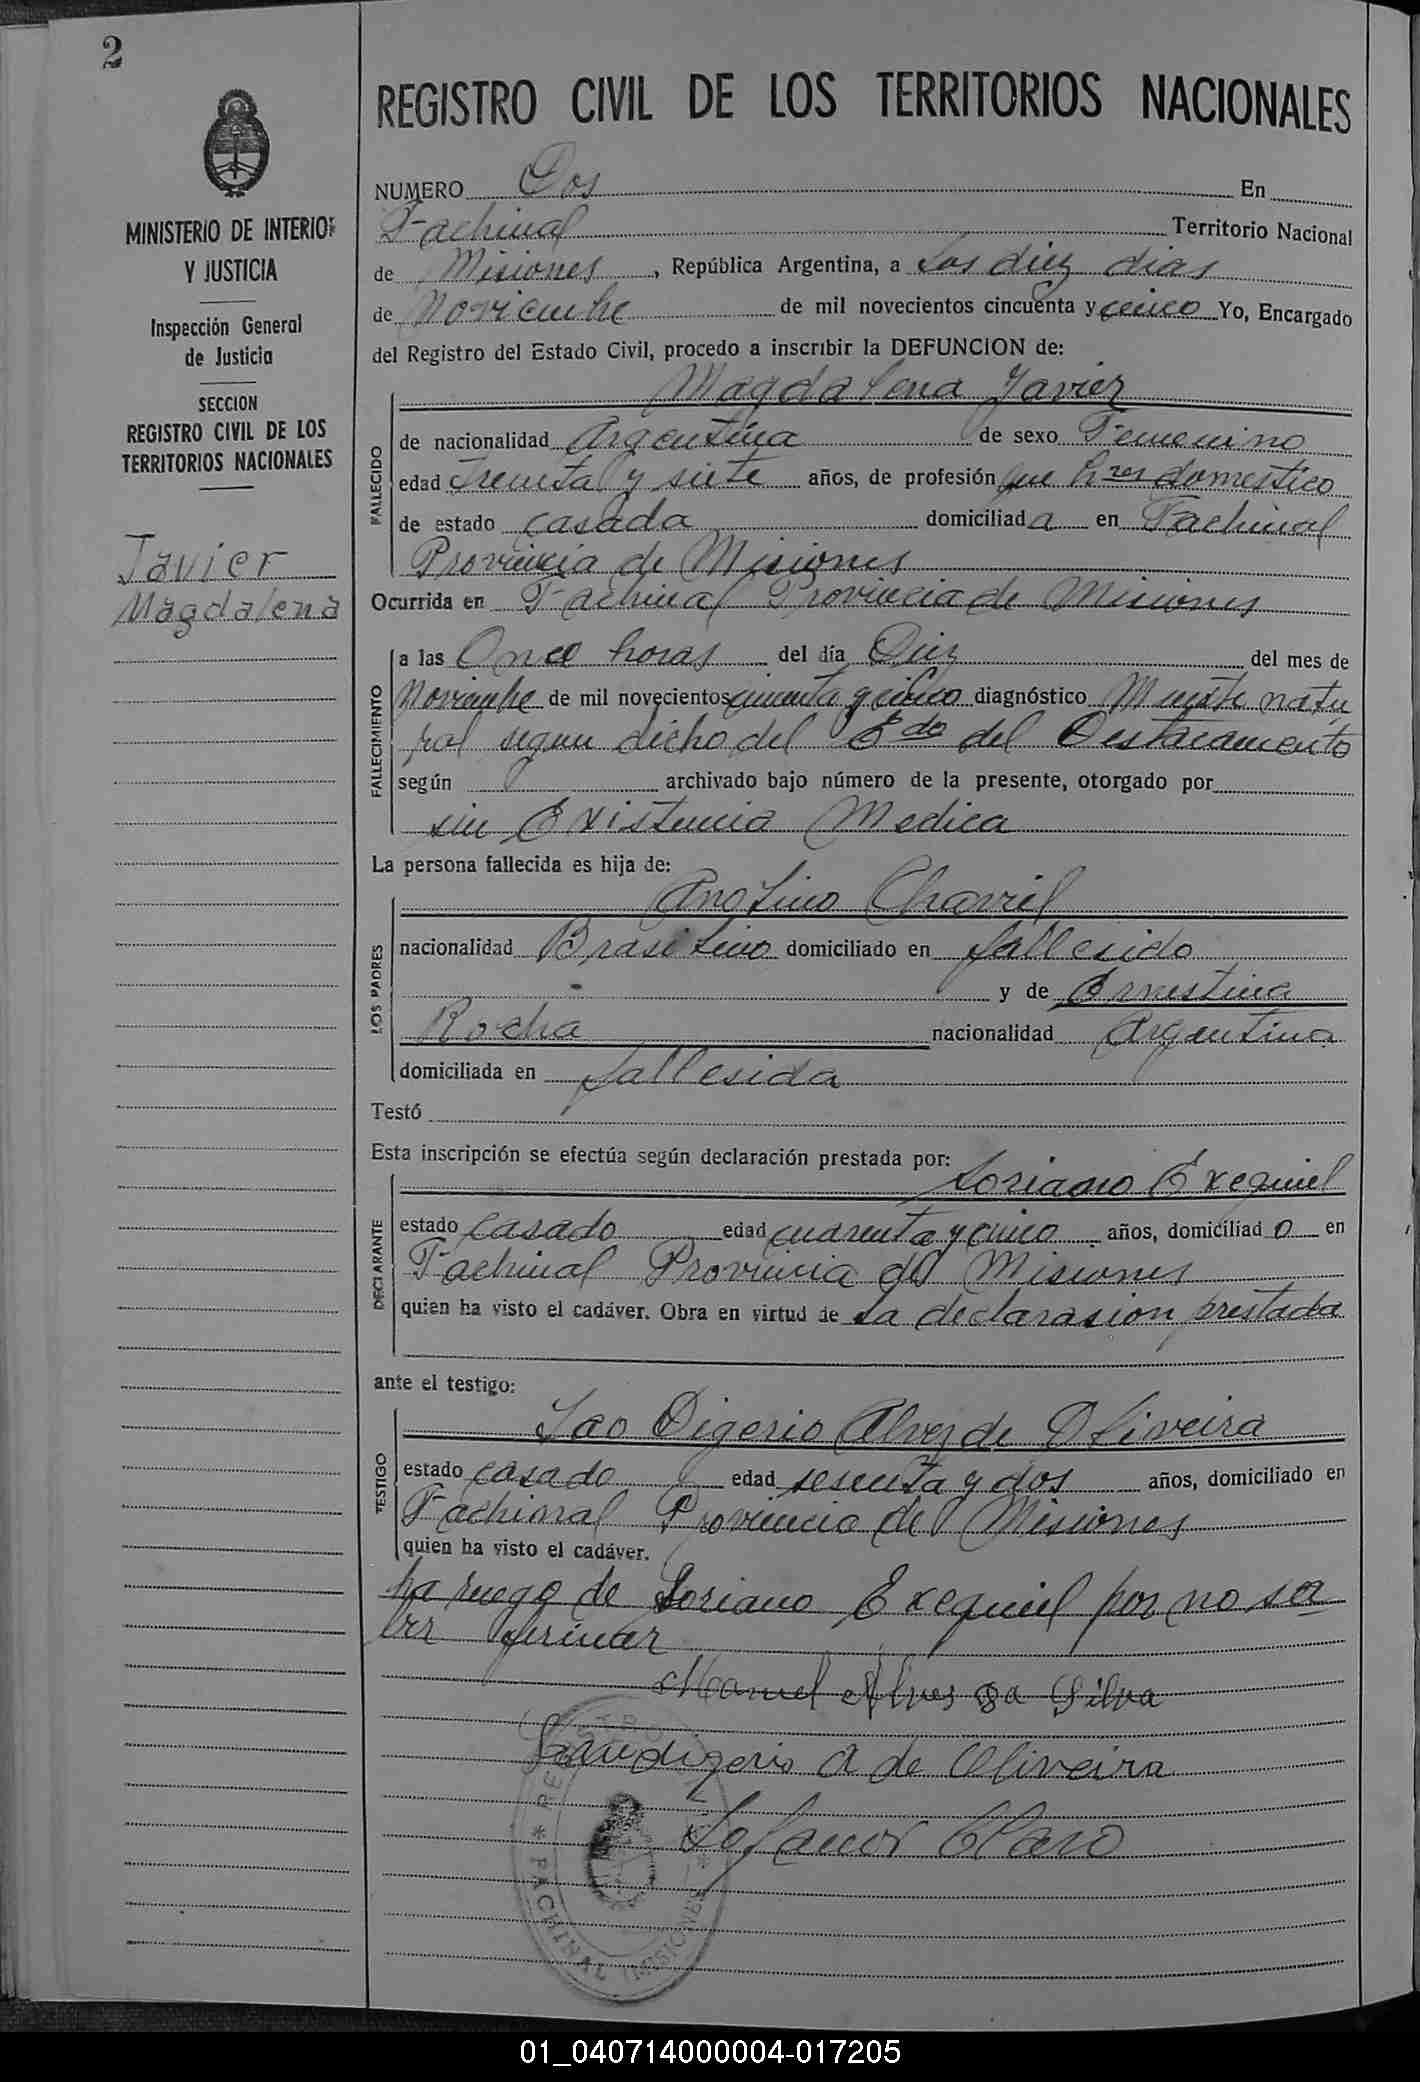 2
REGISTRO CIVIL DE LOS TERRITORIOS NACIONALES
MINISTERIO DE INTERIOR
Y JUSTICIA
Inspección General
de Justicia
SECCION
REGISTRO CIVIL DE LOS
TERRITORIOS NACIONALES
Javier
Magdalena
NUMERO Dos En
Fachinal Territorio Nacional
de Misiones, República Argentina, a Los diez dias
de Noviembre de mil novecientos cincuenta y cinco Yo, Encargado
del Registro del Estado Civil, procedo a inscribir la DEFUNCION de:
Magdalena Javier
FALLECIDO
de nacionalidad Argentina de sexo Femenino
edad treinta y siete años, de profesión que hres domestico
de estado casada domiciliada en Fachinal
Provincia de Misiones
Ocurrida en Fachinal Provincia de Misiones
FALLECIMIENTO
a las Once horas del día Diez del mes de
Noviembre de mil novecientos cincuenta y cinco diagnóstico Muerte natu
ral segun dicho del Edo del Destacamento
según archivado bajo número de la presente, otorgado por
sin Existencia Medica
La persona fallecida es hija de:
LOS PADRES
Anolino Chavril
nacionalidad Brasilino domiciliado en fallesido
y de Ernestina
Rocha nacionalidad Argentina
domiciliada en fallesida
Testó
Esta inscripción se efectúa según declaración prestada por:
Soriano Exequiel
DECLARANTE
estado Casado edad cuarenta y cinco años, domiciliado en
Fachinal Provincia de Misiones
quien ha visto el cadáver. Obra en virtud de La declarasion prestada
ante el testigo:
TESTIGO
Lao Digerio Alvez de Oliveira
estado casado edad sesenta y dos años, domiciliado en
Fachinal Provincia de Misiones
quien ha visto el cadáver.
ha ruego de Soriano Exequiel por no sa
ber firmar
Manuel Alves da Silva
Laudigerio A de Oliveira
Claro
REGISTRO
* FACHINAL (MISIONES) *
01_040714000004-017205